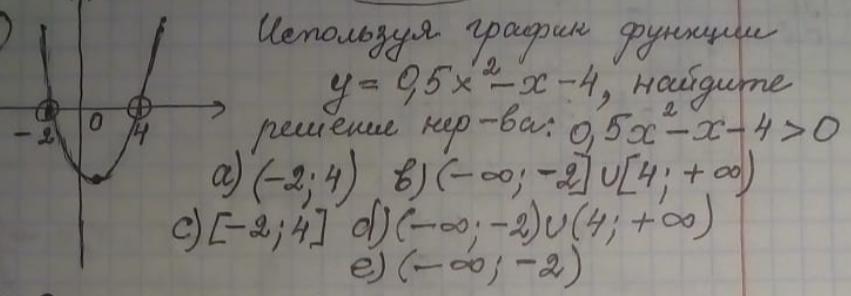 )
Используя график функции
y = 0,5x² - x - 4, найдите
решение нер-ва: 0,5x² - x - 4 > 0
a) (-2; 4) b) (-∞; -2] ∪ [4; +∞)
c) [-2; 4] d) (-∞; -2) ∪ (4; +∞)
e) (-∞; -2)
-2 0 4